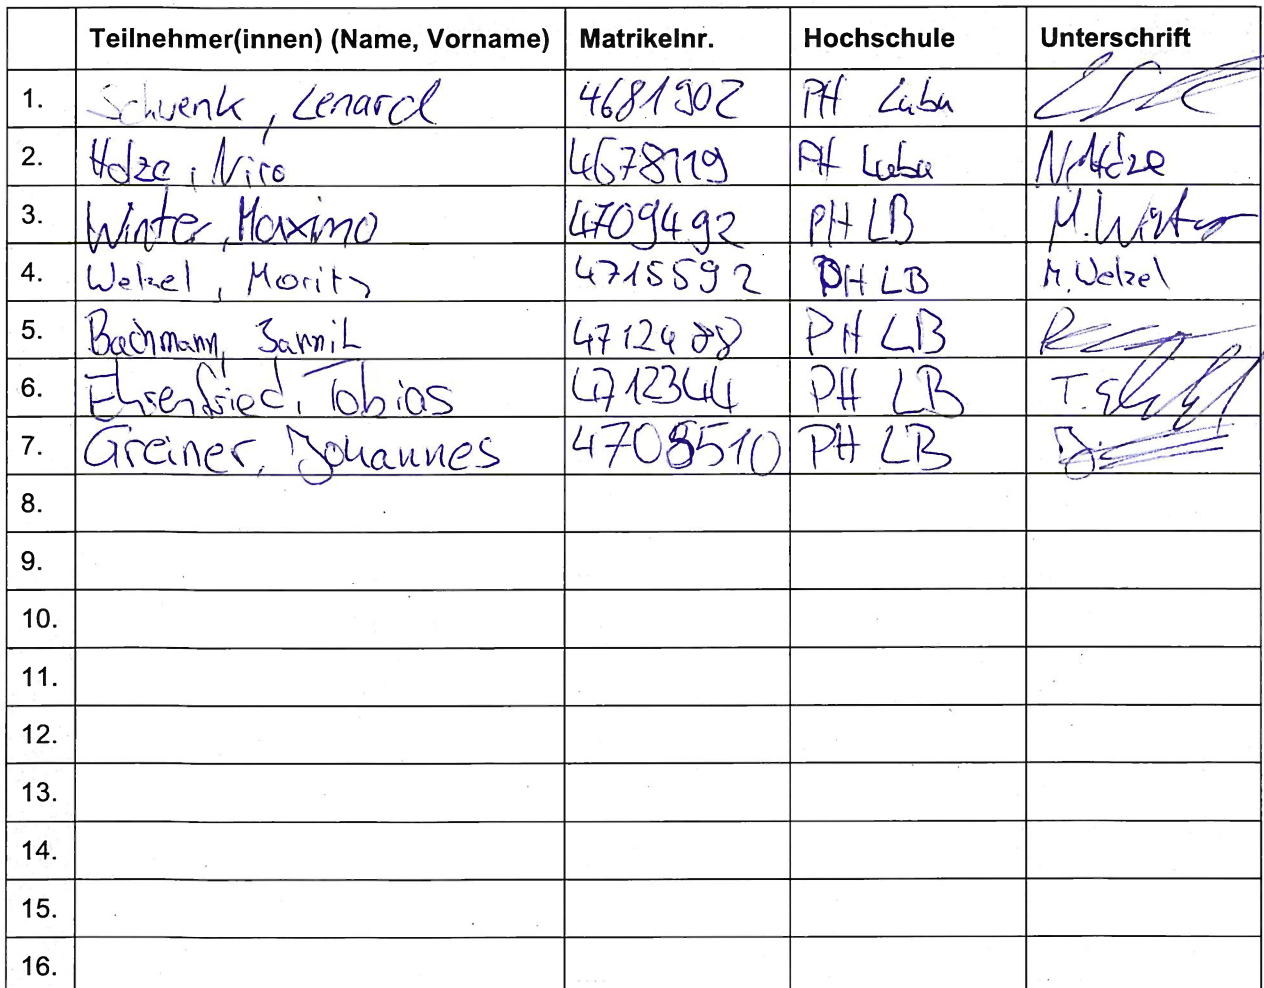 Teilnehmer(innen) (Name, Vorname) Matrikelnr. Hochschule Unterschrift
1. Schwenk, Lenard 4681902 PH Lubu
2. Holze, Nico 4678119 PH Lubu N. Holze
3. Winter, Maximo 4709492 PH LB M. Winter
4. Welzel, Moritz 4715592 PH LB M. Welzel
5. Bachmann, PH LB
6. Ehrenfried, Tobias 4712344 PH LB
7. Greiner, Johannes 4708510 PH LB
8.
9.
10.
11.
12.
13.
14.
15.
16.